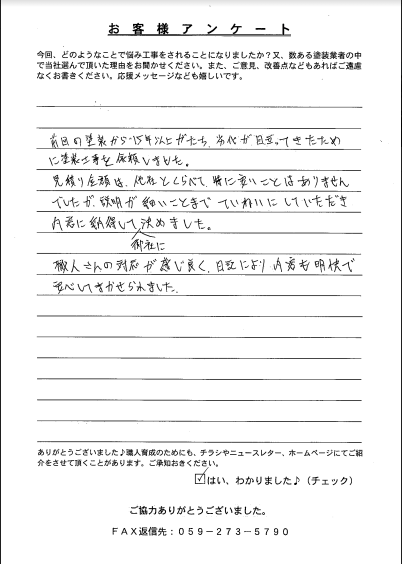 お客様アンケート
今回、どのようなことで悩み工事をされることになりましたか？又、数ある塗装業者の中
で当社選んで頂いた理由をお聞かせください。また、ご意見、改善点などもあればご遠慮
なくお書きください。応援メッセージなども嬉しいです。
前回の塗装から15年以上がたち、劣化が目立ってきたため
に塗装工事を依頼しました。
見積り金額は、他社とくらべて、特に安いことはありません
でしたが、説明が細いことまでていねいにしていただき
内容に納得して決めました。
御社に
職人さんの対応が感じ良く、日記により内容も明快で
安心してまかせられました。
ありがとうございました♪職人育成のためにも、チラシやニュースレター、ホームページにてご紹
介をさせて頂くことがあります。ご承知おきください。
☑はい、わかりました♪（チェック）
ご協力ありがとうございました。
ＦＡＸ返信先：０５９－２７３－５７９０